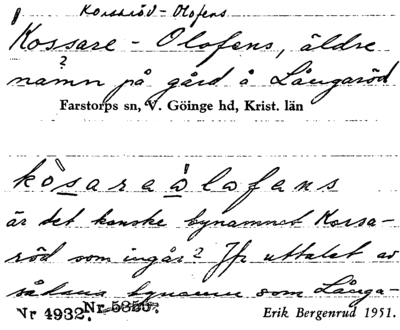 Korsröd - Olofens
Kossare - Olofens, äldre
namn på gård å Långaröd
?
Farstorps sn, V. Göinge hd, Krist. län
kòsara òlofans
är det kanske bynamnet Korsa-
röd som ingår? Jfr uttalet av
sådana bynamn som Långa-
Nr 4932. Nr 5350.
Erik Bergenrud 1951.